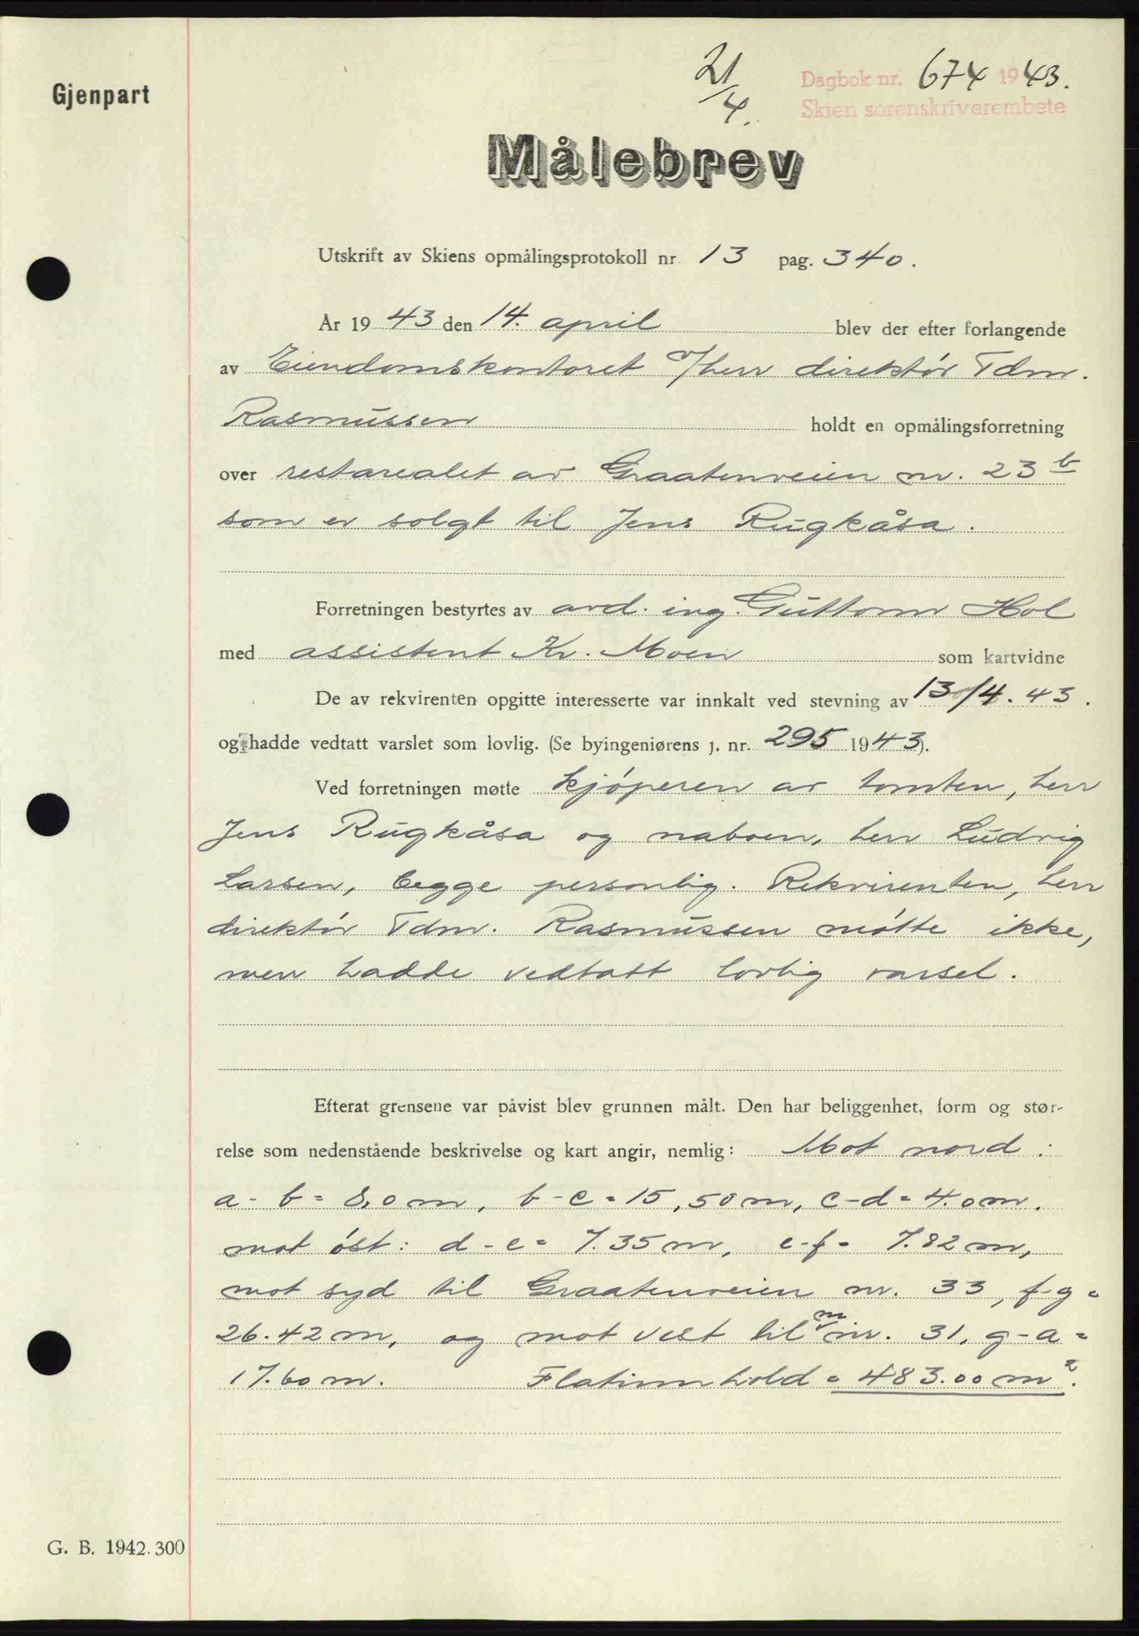 Gjenpart
21/4.
Dagbok nr. 674 1943.
Skien sorenskriverembete
Målebrev
Utskrift av Skiens opmålingsprotokoll nr. 13 pag. 340.
År 1943 den 14. april blev der efter forlangende
av Eiendomskontoret v/herr direktør Edm.
Rasmussen holdt en opmålingsforretning
over restarealet av Graatenveien nr. 23 b
som er solgt til Jens Rugkåsa.
Forretningen bestyrtes av avd. ing. Guttorm Hol
med assistent Kr. Moen som kartvidne
De av rekvirenten opgitte interesserte var innkalt ved stevning av 13/4. 43.
og hadde vedtatt varslet som lovlig. (Se byingeniørens j. nr. 295 1943).
Ved forretningen møtte kjøperen av tomten, herr
Jens Rugkåsa og naboen, herr Ludvig
Larsen, begge personlig. Rekvirenten, herr
direktør Edm. Rasmussen møtte ikke,
men hadde vedtatt lovlig varsel.
Efterat grensene var påvist blev grunnen målt. Den har beliggenhet, form og stør-
relse som nedenstående beskrivelse og kart angir, nemlig: Mot nord:
a - b = 8,0 m, b - c = 15,50 m, c - d = 4.0 m,
mot øst: d - e = 7.35 m, e - f = 7.82 m,
mot syd til Graatenveien nr. 33, f - g =
26.42 m, og mot vest til nr. 31, g - a =
17.60 m. Flatinnhold = 483.00 m².
G. B. 1942. 300